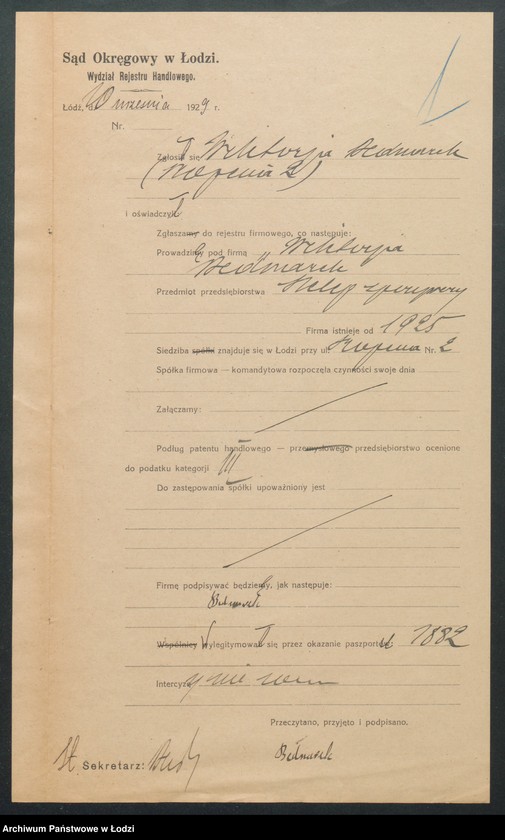 Sąd Okręgowy w Łodzi.
Wydział Rejestru Handlowego.
Łódź, d. 10 września 1929 r.
Nr.
Zgłosił się Wiktorja Bednarek
(Kopernia 2)
i oświadczył
Zgłaszamy do rejestru firmowego, co następuje:
Prowadzimy pod firmą Wiktorja
Bednarek
Przedmiot przedsiębiorstwa Sklep spożywczy
Firma istnieje od 1925
Siedziba spółki znajduje się w Łodzi przy ul. Nr. 2
Spółka firmowa — komandytowa rozpoczęła czynności swoje dnia
Załączamy:
Podług patentu handlowego — przemysłowego przedsiębiorstwo ocenione
do podatku kategorji III
Do zastępowania spółki upoważniony jest
Firmę podpisywać będziemy, jak następuje:
Bednarek
Wspólnicy wylegitymował się przez okazanie paszportów 1882
Intercyzy nie
Przeczytano, przyjęto i podpisano.
St. Sekretarz:
Bednarek
Archiwum Państwowe w Łodzi